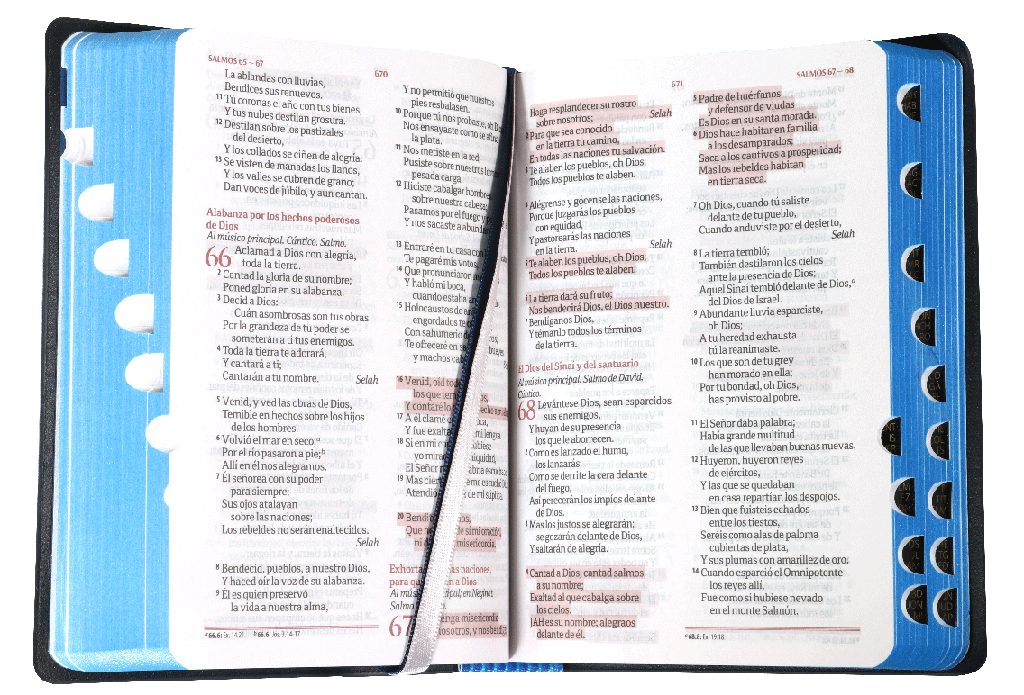 SALMOS 65—67
670
La ablandas con lluvias,
Bendices sus renuevos.
11 Tú coronas el año con tus bienes,
Y tus nubes destilan grosura.
12 Destilan sobre los pastizales
del desierto,
Y los collados se ciñen de alegría.
13 Se visten de manadas los llanos,
Y los valles se cubren de grano;
Dan voces de júbilo, y aun cantan.
Alabanza por los hechos poderosos
de Dios
Al músico principal. Cántico. Salmo.
66 Aclamad a Dios con alegría,
toda la tierra.
2 Cantad la gloria de su nombre;
Poned gloria en su alabanza.
3 Decid a Dios:
Cuán asombrosas son tus obras
Por la grandeza de tu poder se
someterán a ti tus enemigos.
4 Toda la tierra te adorará,
Y cantará a ti;
Cantarán a tu nombre. Selah
5 Venid, y ved las obras de Dios,
Temible en hechos sobre los hijos
de los hombres
6 Volvió el mar en seco a
Por el río pasaron a pie; b
Allí en él nos alegramos.
7 Él señorea con su poder
para siempre;
Sus ojos atalayan
sobre las naciones;
Los rebeldes no serán enaltecidos.
Selah
8 Bendecid, pueblos, a nuestro Dios,
Y haced oír la voz de su alabanza.
9 Él es quien preservó
la vida a nuestra alma,
a 66.6: Ex. 14.21. b 66.6: Jos. 3.14-17.
Y no permitió que nuestros
pies resbalasen.
10 Porque tú nos probaste, oh
Nos ensayaste como se afina
la plata.
11 Nos metiste en la red
Pusiste sobre nuestros
pesada carga
12 Hiciste cabalgar hombres
sobre nuestra cabeza;
Pasamos por el fuego y
Y nos sacaste a
13 Entraré en tu casa con
Te pagaré mis votos
14 Que pronunciaron
Y habló mi boca,
cuando estaba
15 Holocaustos de
engordados te
Con sahumerio de
Te ofreceré en
y machos
16 Venid, oíd
los que
Y contaré lo hecho
17 A él clamé
Y fue mi lengua
18 Si en mi
yo
El Señor
19 Mas
Atendió de mi súplica.
20 Bendito
Que
ni misericordia.
las naciones,
para que a Dios
Al músico principal; en Neginot.
Salmo
67 tenga misericordia
nosotros, y nos bendiga
671
SALMOS 67—68
Haga resplandecer su rostro
sobre nosotros; Selah
2 Para que sea conocido
en la tierra tu camino,
En todas las naciones tu salvación.
3 Te alaben los pueblos, oh Dios;
Todos los pueblos te alaben.
4 Alégrense y gócense las naciones,
Porque juzgarás los pueblos
con equidad,
Y pastorearás las naciones
en la tierra. Selah
5 Te alaben los pueblos, oh Dios;
Todos los pueblos te alaben.
6 La tierra dará su fruto;
Nos bendecirá Dios, el Dios nuestro.
7 Bendíganos Dios,
Y témanlo todos los términos
de la tierra.
El Dios del Sinaí y del santuario
Al músico principal. Salmo de David.
Cántico.
68 Levántese Dios, sean esparcidos
sus enemigos,
Y huyan de su presencia
los que le aborrecen.
2 Como es lanzado el humo,
los lanzarás
Como se derrite la cera delante
del fuego,
Así perecerán los impíos delante
de Dios.
3 Mas los justos se alegrarán;
se gozarán delante de Dios,
Y saltarán de alegría.
4 Cantad a Dios, cantad salmos
a su nombre;
Exaltad al que cabalga sobre
los cielos.
JAH es su nombre; alegraos
delante de él.
5 Padre de huérfanos
y defensor de viudas
Es Dios en su santa morada.
6 Dios hace habitar en familia
a los desamparados;
Saca a los cautivos a prosperidad;
Mas los rebeldes habitan
en tierra seca.
7 Oh Dios, cuando tú saliste
delante de tu pueblo,
Cuando anduviste por el desierto,
Selah
8 La tierra tembló;
También destilaron los cielos
ante la presencia de Dios;
Aquel Sinaí tembló delante de Dios, a
del Dios de Israel.
9 Abundante lluvia esparciste,
oh Dios;
A tu heredad exhausta
tú la reanimaste.
10 Los que son de tu grey
han morado en ella;
Por tu bondad, oh Dios,
has provisto al pobre.
11 El Señor daba palabra;
Había grande multitud
de las que llevaban buenas nuevas.
12 Huyeron, huyeron reyes
de ejércitos,
Y las que se quedaban
en casa repartían los despojos.
13 Bien que fuisteis echados
entre los tiestos,
Seréis como alas de paloma
cubiertas de plata,
Y sus plumas con amarillez de oro.
14 Cuando esparció el Omnipotente
los reyes allí,
Fue como si hubiese nevado
en el monte Salmón.
a 68.8: Ex. 19.18.